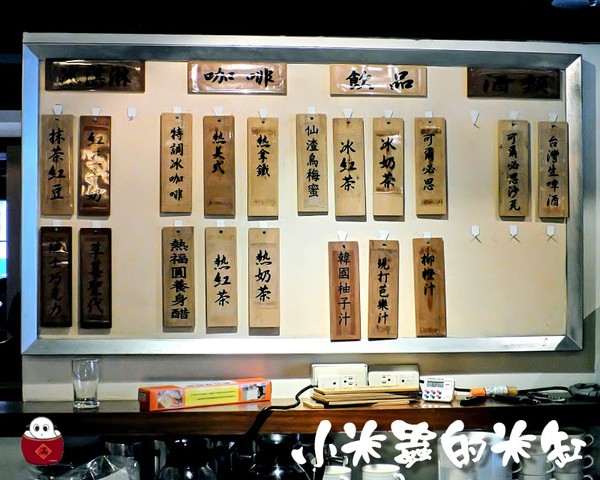 咖啡
飲品
酒類
抹茶紅豆
特調冰咖啡
熱美式
熱拿鐵
仙渣烏梅蜜
冰紅茶
冰奶茶
可爾必思
可爾必思沙瓦
台灣生啤酒
草莓聖代
熱福圓養身醋
熱紅茶
熱奶茶
韓國柚子汁
現打芭樂汁
柳橙汁
小米蟲的米缸